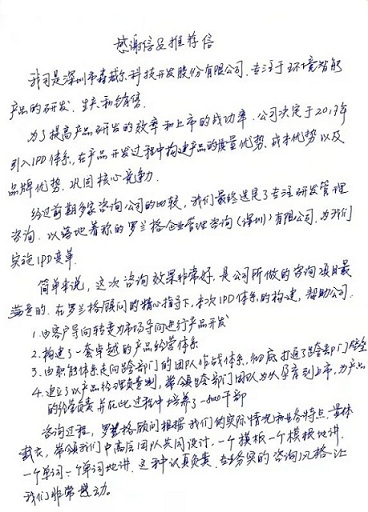 感谢信及推荐信
我司是深圳市森威尔科技开发股份有限公司，专注于环境智能
产品的研发、生产和销售。
为了提高产品研发的效率和上市的成功率，公司决定于2017年
引入IPD体系，在产品开发过程中构建产品的质量优势、成本优势以及
品牌优势，巩固核心竞争力。
经过前期多家咨询公司的比较，我们最终选定了专注研发管理
咨询、以落地着称的罗兰格企业管理咨询（深圳）有限公司，为我们
实施IPD变革。
简单来说，这次咨询效果非常好，是公司所做的咨询项目最
满意的，在罗兰格顾问的精心指导下，本次IPD体系的构建，帮助公司：
1.由客户导向转变为市场导向进行产品开发
2.构建了一套卓越的产品经营体系
3.由职能体系走向跨部门的团队作战体系，彻底打通了跨部门壁垒
4.建立了以产品经理负责制，带领跨部门团队为从孕育到上市，为产品
的经营负责，并在此过程中培养了一批干部
咨询过程，罗兰格顾问根据我们的实际情况和业务特点，量体
裁衣，带领我们中高层团队共同设计，一个模板一个模板地讲，
一个单词一个单词地讲，这种认真负责、务实的咨询风格让
我们非常感动。